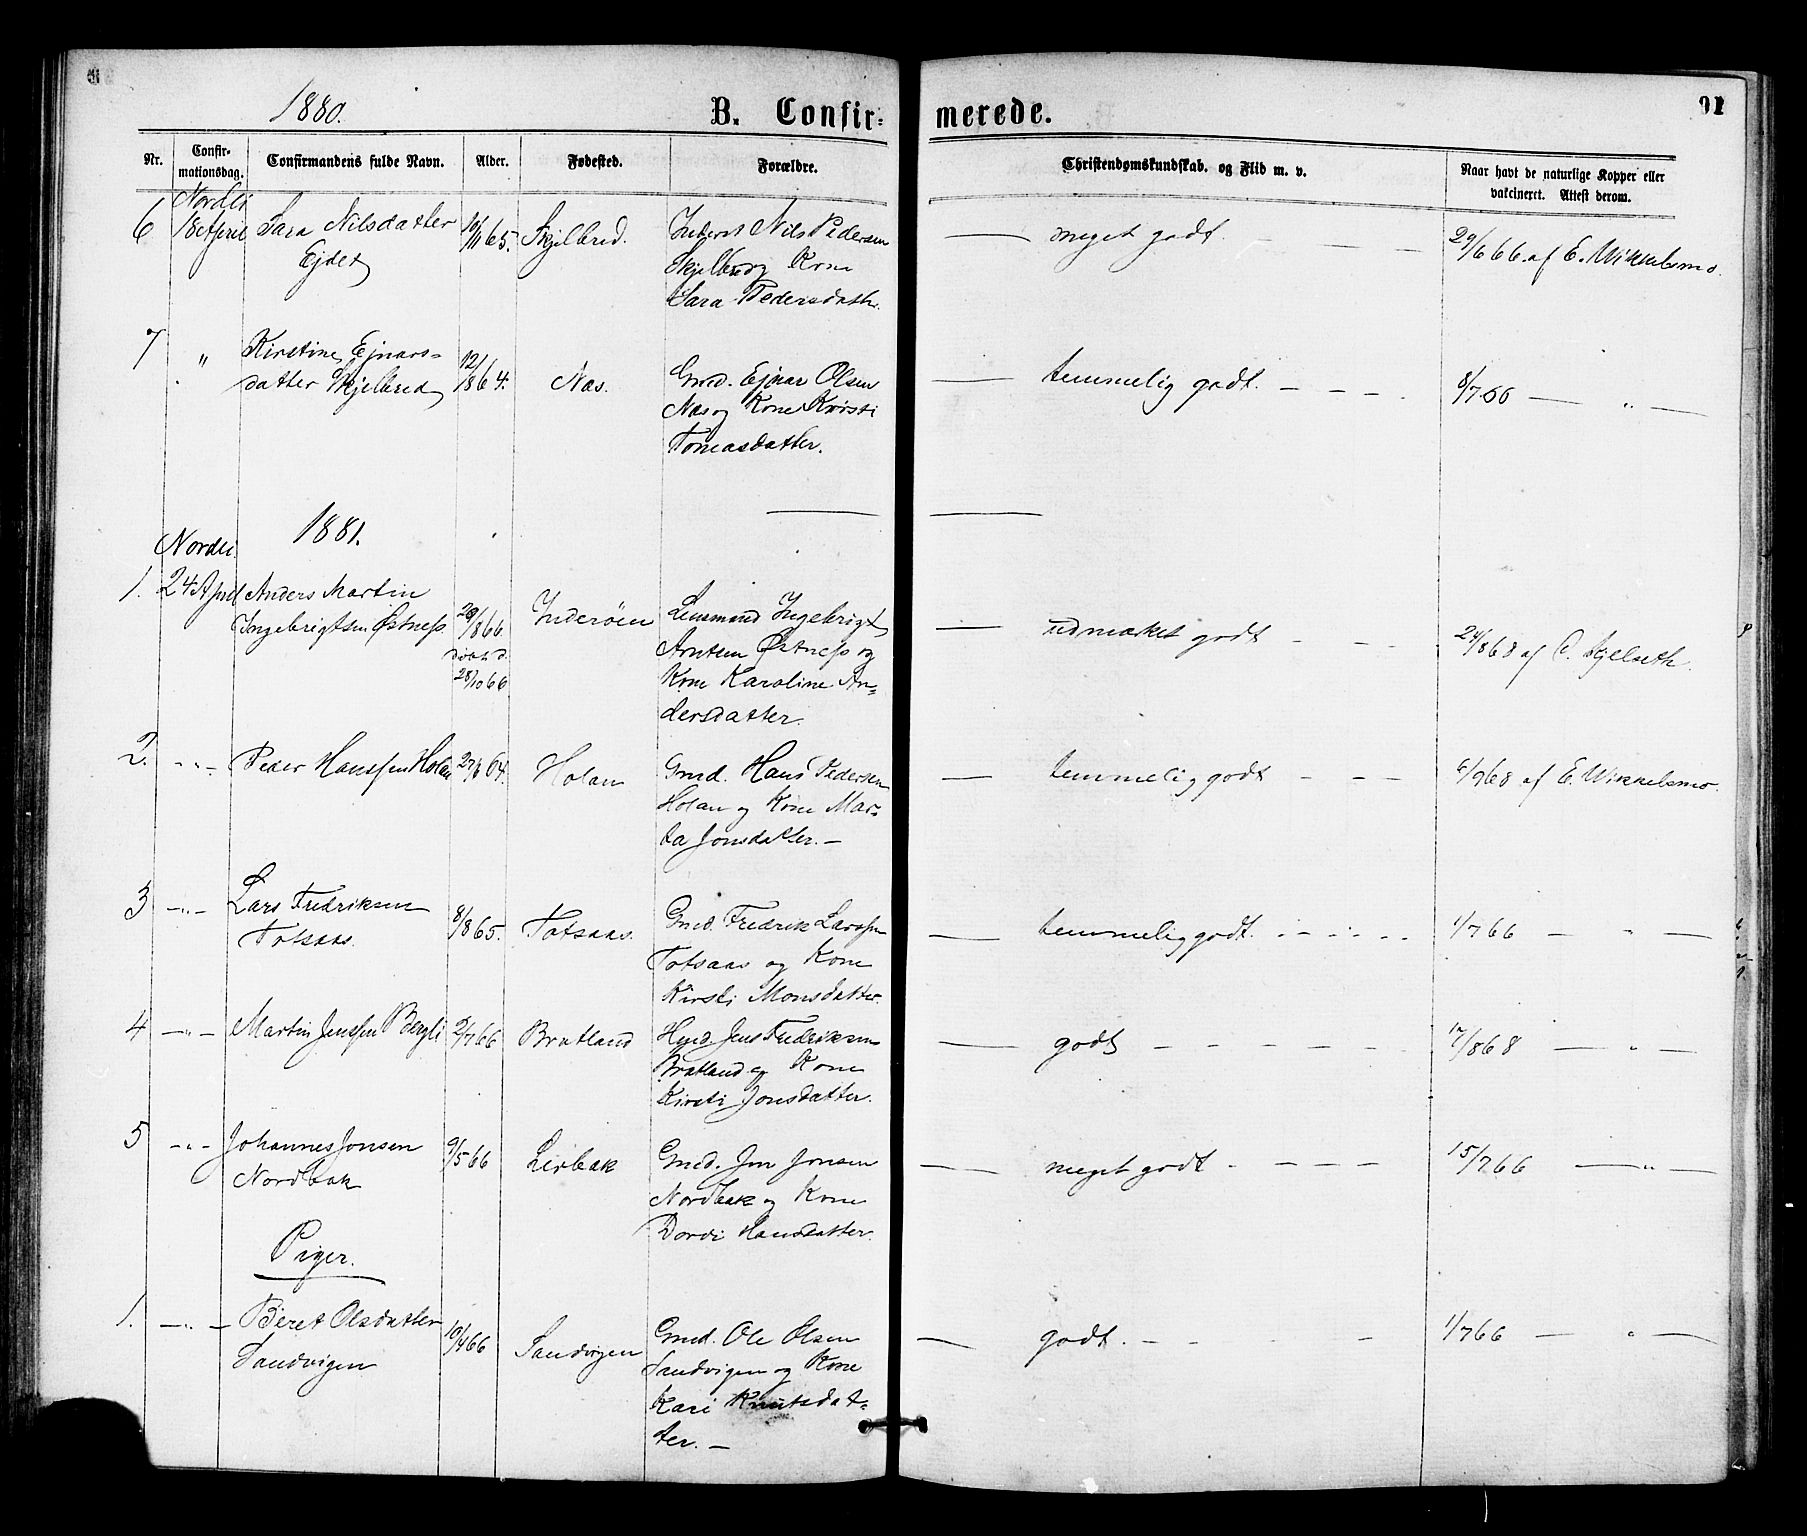 1880.
B. Confir-
merede.
91
Nr.
Confir-
mationsdag.
Confirmandens fulde Navn.
Alder.
Fødested.
Forældre.
Christendomskundskab. og Flid m. v.
Naar havt de naturlige Kopper eller
vakcineret. Attest derom.
Nordli
6 18 April Sara Nilsdatter 10/11 65. Skjelbred. Inderst Nils Pedersen — meget godt. — — — 29/6 66. af E. Wikkelsmo.
Ejdet Skjelbred og Kone
Sara Pedersdatter.
7 " Kirstine Ejnars-
datter Skjelbred 12/1 64. Næs. Gmd. Ejnar Olsen — temmelig godt. — — — 8/7 66 — " —
Næs og Kone Kirsti
Tomasdatter.
1881.
Nordli
1. 24 April Anders Martin
Ingebrigtsen Østness. 29/8 66. Inderøen Lensmand Ingebrigt — udmærket godt — — — 24/8 68 af O. Skjelseth.
døbt d. Arntsen Østness og
28/10 66 Kone Karoline An-
dersdatter.
2. —"— Peder Hanssen Holan 27/6 64. Holan Gmd. Hans Pedersen — temmelig godt — — — 6/9 68 af E. Wikkelsmo.
Holan og Kone Mar-
ta Jonsdatter. —
3 —"— Lars Fredriksen 8/8 65. Totsaas. Gmd. Fredrik Larssen — temmelig godt. — — — — 1/7 66 — " —
Totsaas. Totsaas og Kone
Kirsti Monsdatter.
4 —"— Martin Jenssen Bergli 2/7 66 Bratland Hmd. Jens Fredriksen — godt — — — — — 17/8 68 — " —
Bratland og Kone
Kirsti Jonsdatter.
5 —"— Johannes Jonsen 9/5 66 Lirbak Gmd. Jon Jonsen — meget godt — — — — 15/7 66 — " —
Nordbak Nordbak og Kone
Dordi Hansdatter.
Piger.
1. —"— Beret Olsdatter 10/4 66 Sandvigen Gmd. Ole Olsen — godt. — — — — 1/7 66 — " —
Sandvigen Sandvigen og Kone
Kari Knutsdat-
ter. —